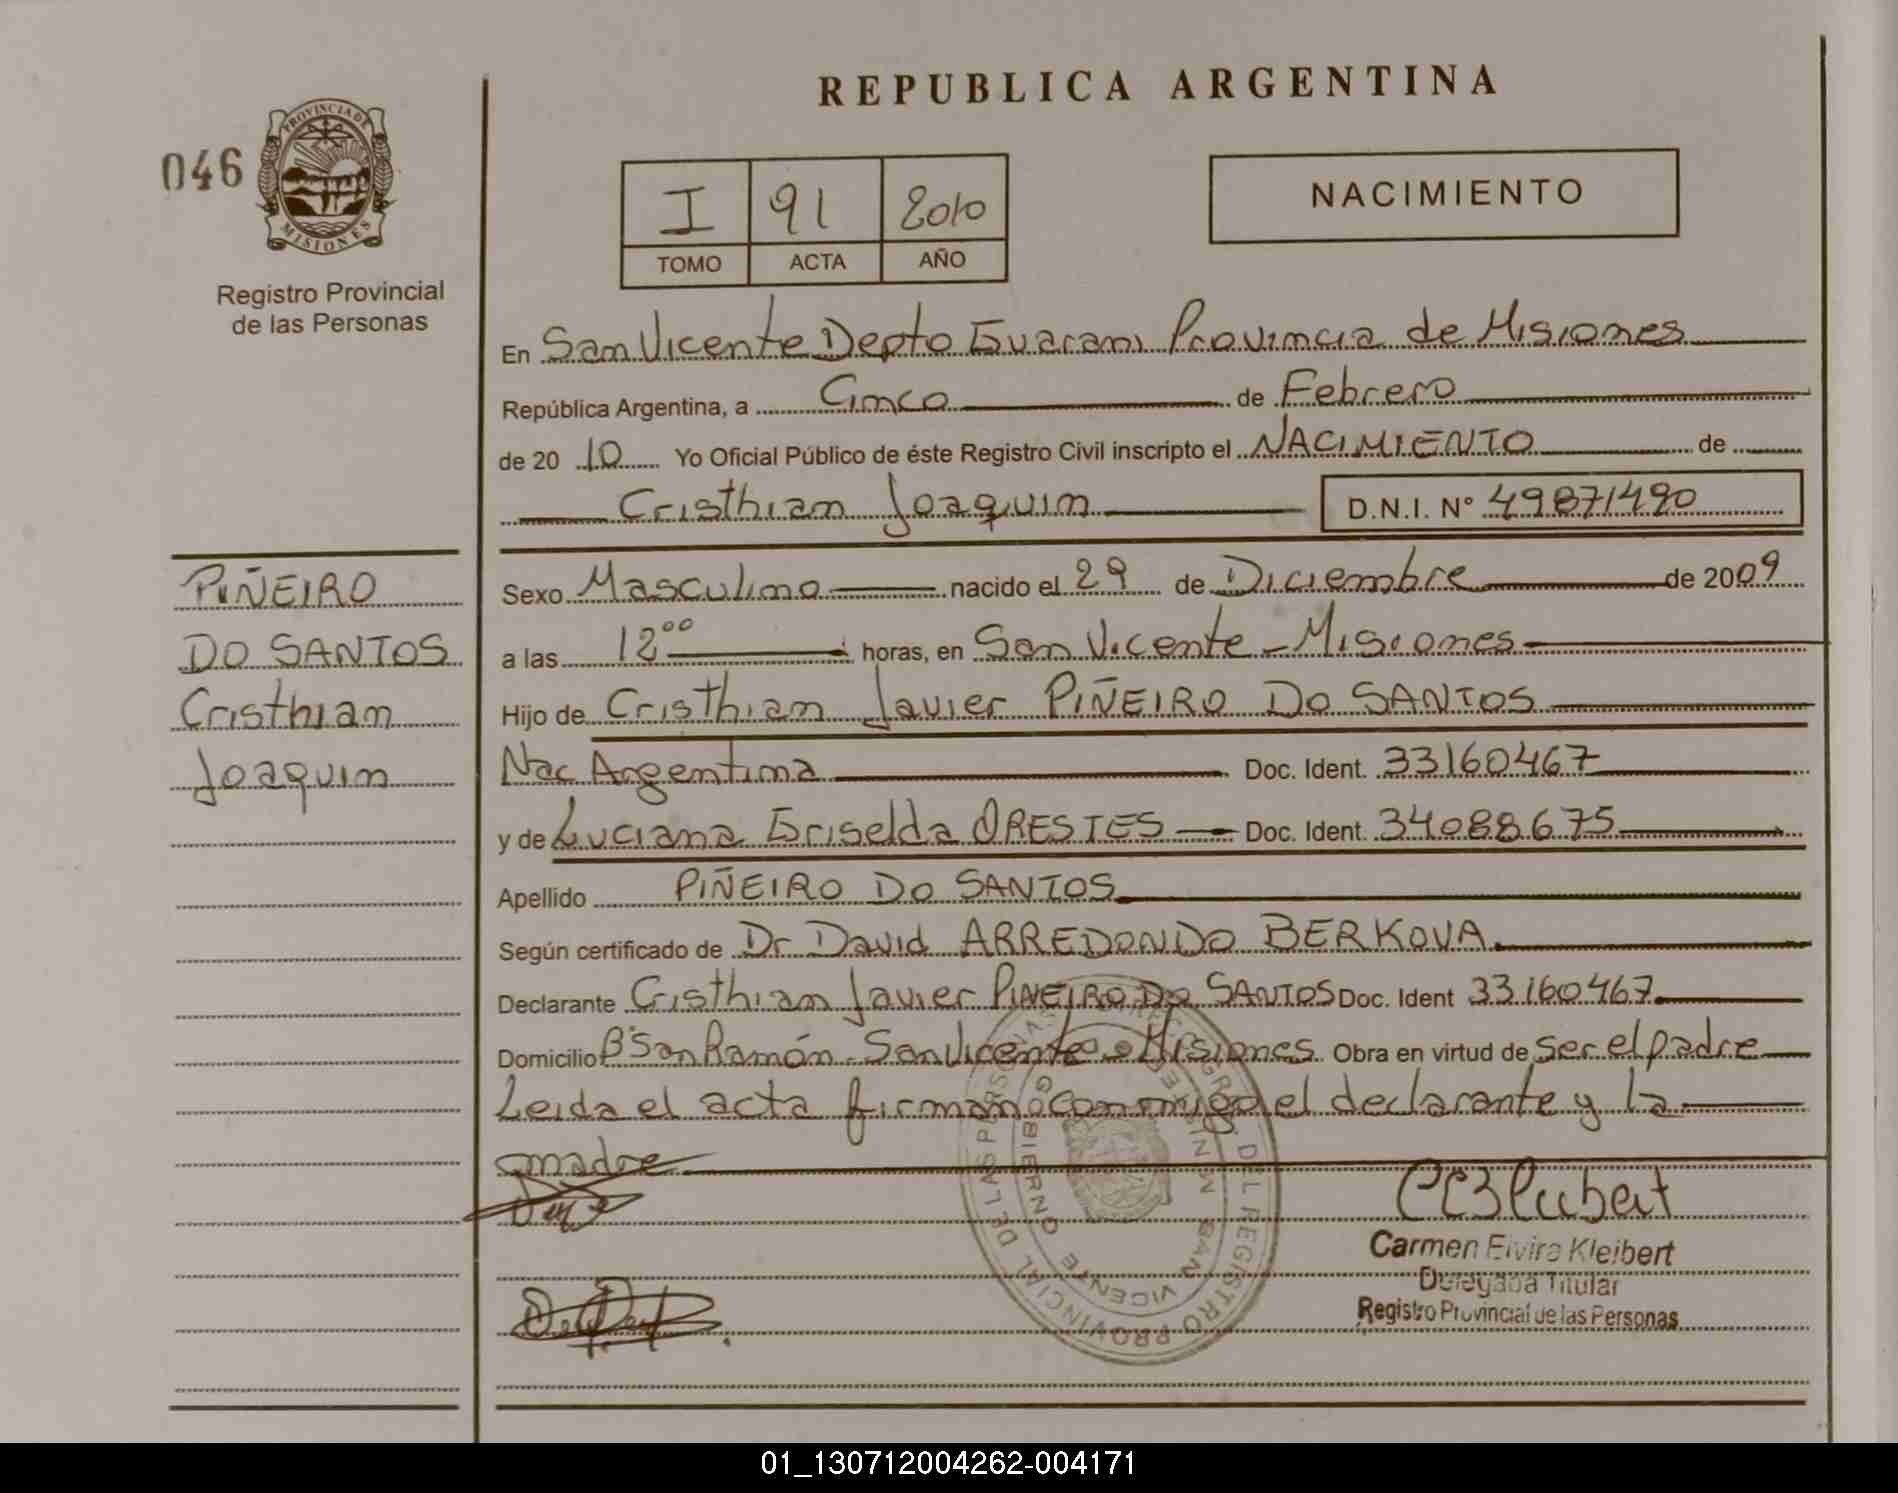 REPUBLICA ARGENTINA
046
PROVINCIA DE
MISIONES
Registro Provincial
de las Personas
I 91 2010
TOMO ACTA AÑO
NACIMIENTO
En San Vicente Depto Guarani Provincia de Misiones
República Argentina, a Cinco de Febrero
de 2010 Yo Oficial Público de éste Registro Civil inscripto el NACIMIENTO de
Cristhian Joaquin D.N.I. N° 49871490
PIÑEIRO
DO SANTOS
Cristhian
Joaquin
Sexo Masculino nacido el 29 de Diciembre de 2009
a las 12ºº horas, en San Vicente - Misiones
Hijo de Cristhian Javier PIÑEIRO DO SANTOS
Nac Argentina Doc. Ident. 33160467
y de Luciana Griselda ORESTES Doc. Ident. 34088675
Apellido PIÑEIRO DO SANTOS
Según certificado de Dr David ARREDONDO BERKOVA
Declarante Cristhian Javier PIÑEIRO DO SANTOS Doc. Ident 33160467
Domicilio Bº San Ramón - San Vicente - Misiones Obra en virtud de ser el padre
Leida el acta firman conmigo el declarante y la
madre
Carmen Elvira Kleibert
Delegada Titular
Registro Provincial de las Personas
DEL REGISTRO PROVINCIAL DE LAS PERSONAS
GOBIERNO
SAN VICENTE
01_130712004262-004171